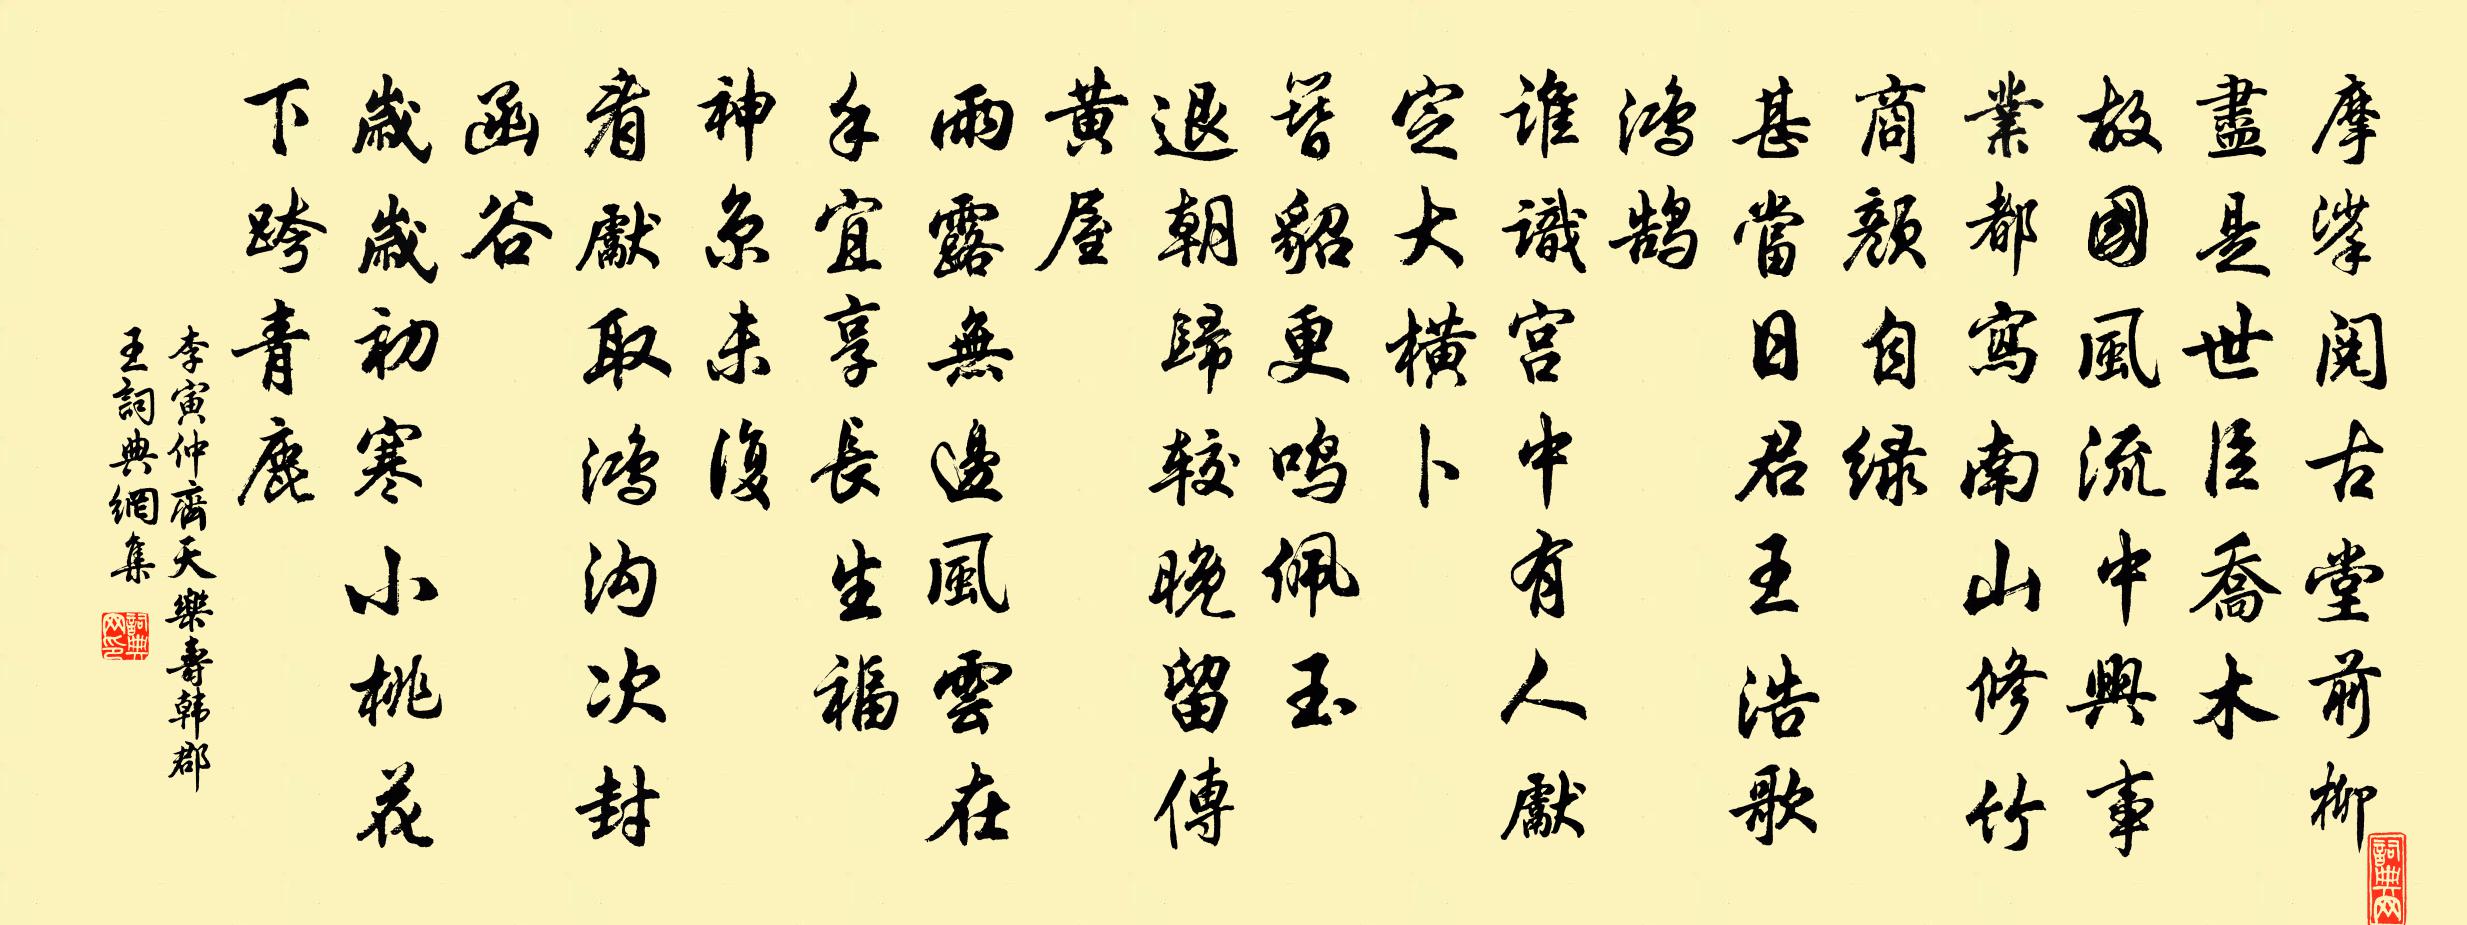 摩挲阅古堂前柳
盡是世臣喬木
故國風流中興事
業都寫南山修竹
商顏自緑
甚當日君王浩歌
鴻鵠
誰識宫中有人獻
定大橫卜
簪貂更鸣佩玉
退朝歸較晚留傳
黄屋
雨露無邊風雲在
手宜享長生福
神京未復
看獻取鴻沟次封
函谷
歲歲初寒小桃花
下跨青鹿
李寅仲齊天樂壽韩郡
王詞典網集
詞典网印
詞典网